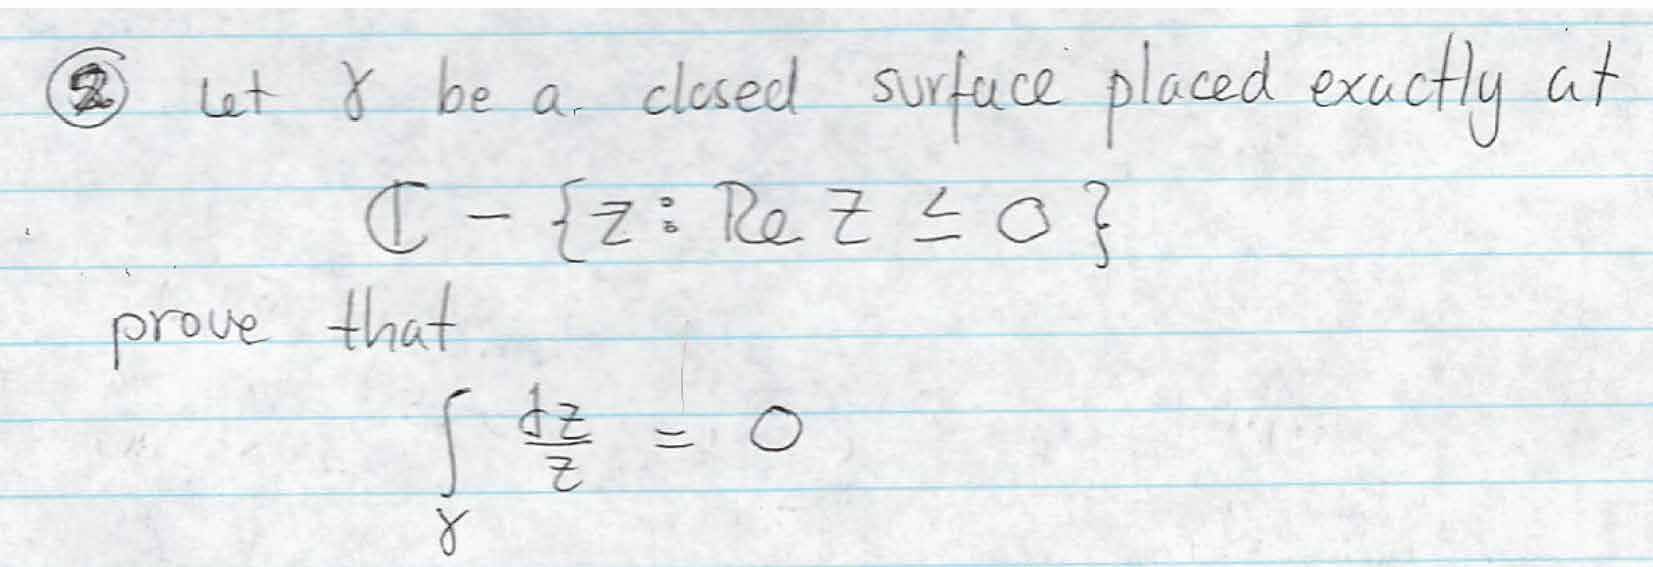 ② Let γ be a closed surface placed exactly at
ℂ - {z : Re z ≤ 0}
prove that
∫_γ dz/z = 0